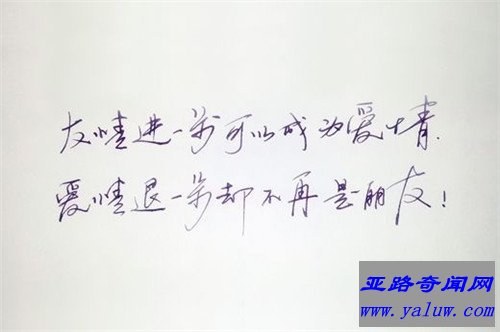 友情进一步可以成为爱情.
爱情退一步却不再是朋友!
亚路奇闻网
www.yaluw.com